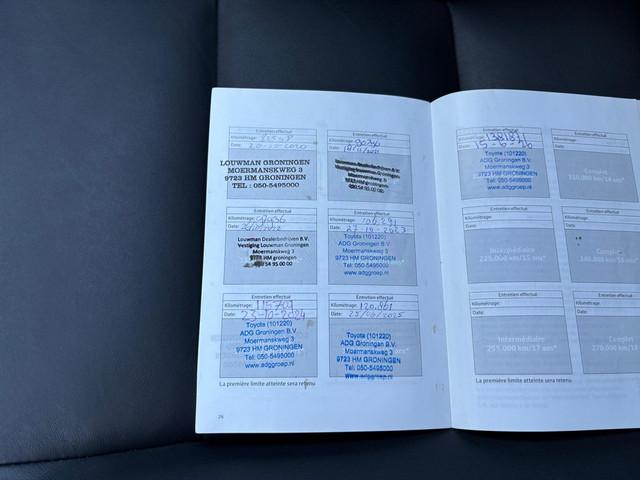 Entretien effectué
Kilométrage:
Date: 20-10-2020
LOUWMAN GRONINGEN
MOERMANSKWEG 3
9723 HM GRONINGEN
TEL : 050-5495000
Entretien effectué
Kilométrage: 90746
Date:
Louwman Dealerbedrijven B.V.
Vestiging Louwman Groningen
Moermanskweg 3
9723 HM groningen
Entretien effectué
Kilométrage:
Date:
Louwman Dealerbedrijven B.V.
Vestiging Louwman Groningen
Moermanskweg 3
HM groningen
54 95 00 00
Entretien effectué
Kilométrage: 106.291
Date: 27-10-2023
Toyota (101220)
ADG Groningen B.V.
Moermanskweg 3
9723 HM GRONINGEN
Tel: 050-5495000
www.adggroep.nl
Entretien effectué
Kilométrage: 115709
Date: 23-10-2024
Toyota (101220)
ADG Groningen B.V.
Moermanskweg 3
9723 HM GRONINGEN
Tel: 050-5495000
www.adggroep.nl
Entretien effectué
Kilométrage: 120.861
Date: 25/06/2025
Toyota (101220)
ADG Groningen B.V.
Moermanskweg 3
9723 HM GRONINGEN
Tel: 050-5495000
www.adggroep.nl
La première limite atteinte sera retenu
26
Entretien effectué
Kilométrage: 138187
Date: 15-6-26
Toyota (101220)
ADG Groningen B.V.
Moermanskweg 3
9723 HM GRONINGEN
Tel: 050-5495000
www.adggroep.nl
Entretien effectué
Kilométrage:
Date:
Complet
210.000 km/14 ans*
Entretien effectué
Kilométrage:
Date:
Intermédiaire
225.000 km/15 ans*
Entretien effectué
Kilométrage:
Date:
Entretien effectué
Kilométrage:
Date:
Intermédiaire
255.000 km/17 ans*
Entretien effectué
Kilométrage:
Date:
Complet
270.000 km/1
La première limite atteinte sera retenu